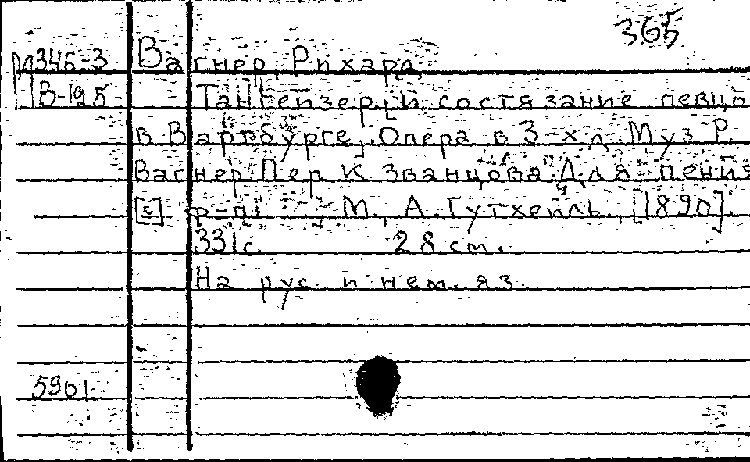 365
М346-3 Вагнер, Рихард
В-125 Тангейзер, и состязание певцо
в Вартбурге, Опера в 3-х д. Муз. Р.
Вагнер. Пер. К. Званцова. Для пения
[с] ф-п. М., А. Гутхейль, [1890].
331 с. 28 cm.
На рус. и нем. яз.
5901